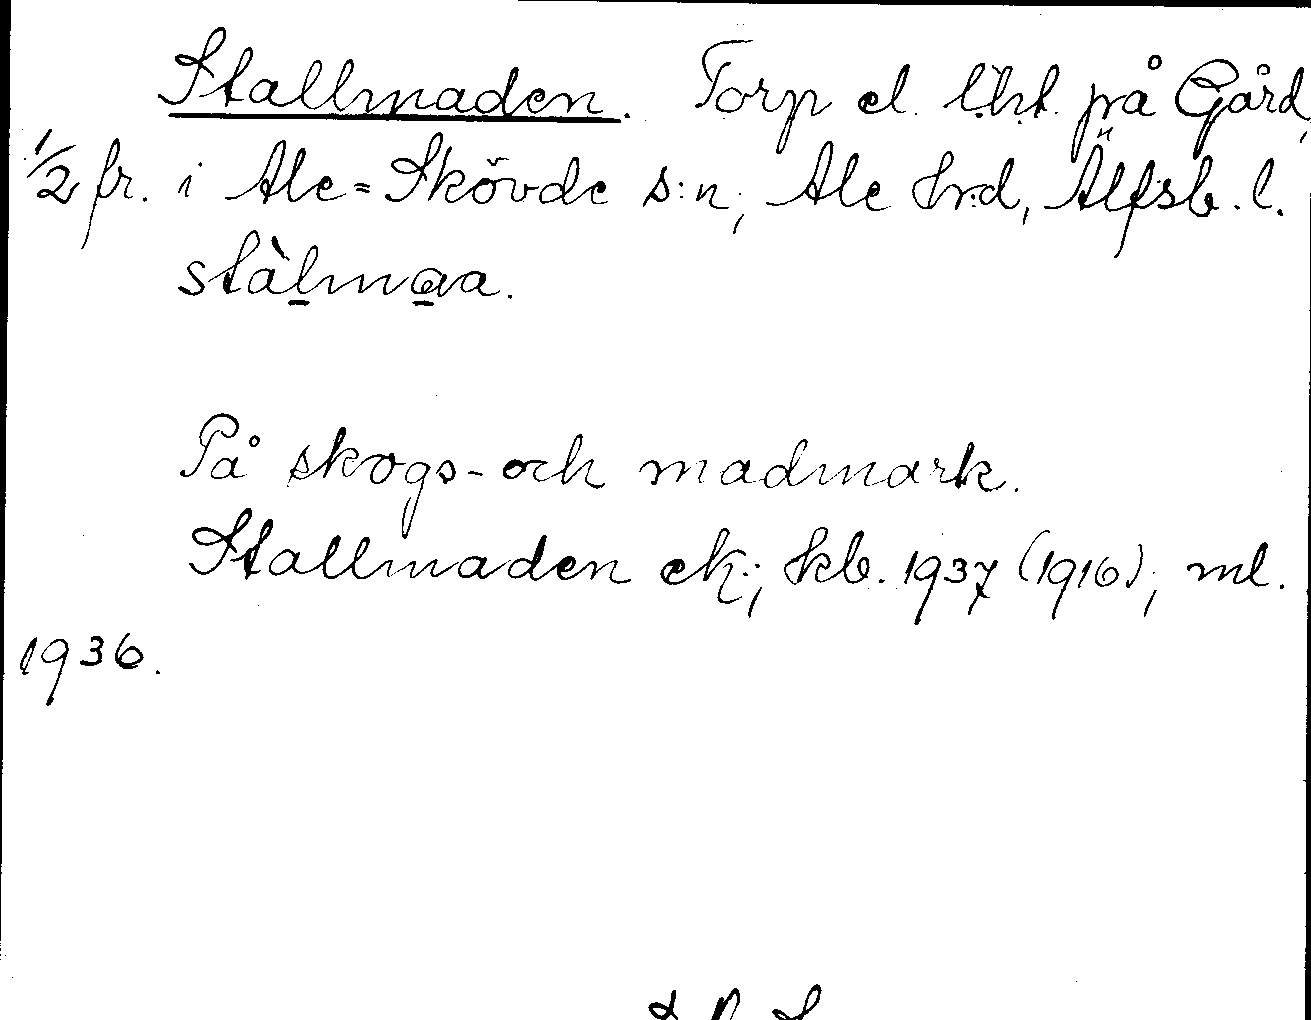 Stallmaden. Torp el. lht. på Gård,
1/2 fr. i Ale=Skövde s:n, Ale hrd, Älfsb. l.
stàlmaa.
På skogs- och madmark.
Stallmaden ek.; kb. 1937 (1916), ml.
1936.